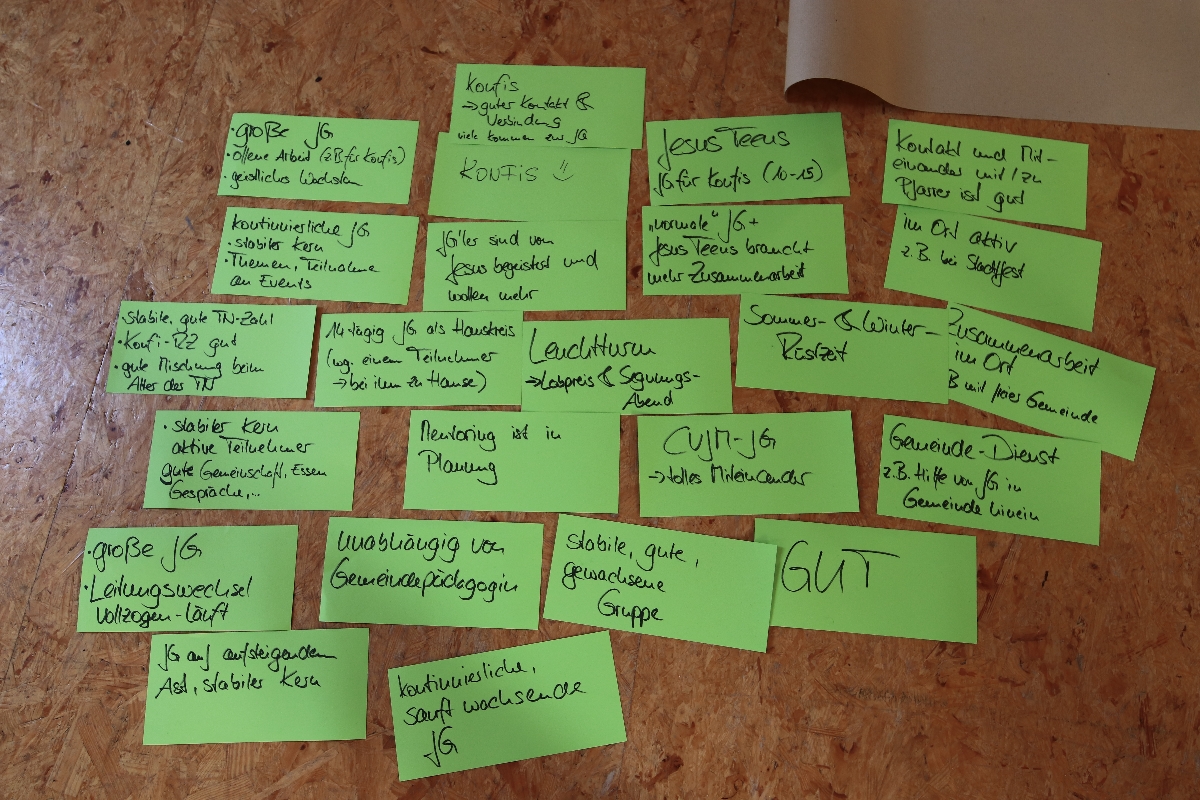 Konfis
→ guter Kontakt &
Verbindung
viele kommen zur JG
• große JG
• offene Arbeit (z.B. für Konfis)
• geistliches Wachsen
KONFIS
Jesus Teens
JG für Konfis (10-15)
Kontakt und Mit-
einander mit / zu
Pfarrer ist gut
kontinuierliche JG
• stabiler Kern
• Themen, Teilnahme
an Events
JG'ler sind von
Jesus begeistert und
wollen mehr
„normale" JG +
Jesus Teens braucht
mehr Zusammenarbeit
im Ort aktiv
z.B. bei Stadtfest
• stabile, gute TN-Zahl
• Konfi-RZ gut
• gute Mischung beim
Alter der TN
14-tägig JG als Hauskreis
(wg. einem Teilnehmer
→ bei ihm zu Hause)
Leuchtturm
→ Lobpreis & Segnungs-
Abend
Sommer- & Winter-
Rüstzeit
Zusammenarbeit
im Ort
B mit freier Gemeinde
• stabiler Kern
aktive Teilnehmer
gute Gemeinschaft, Essen
Gespräche,...
Mentoring ist in
Planung
CVJM-JG
→ tolles Miteinander
Gemeinde-Dienst
z.B. Hilfe von JG in
Gemeinde hinein
• große JG
• Leitungswechsel
vollzogen - läuft
unabhängig von
Gemeindepädagogin
stabile, gute,
gewachsene
Gruppe
GUT
JG auf aufsteigendem
Ast, stabiler Kern
kontinuierliche,
sanft wachsende
JG